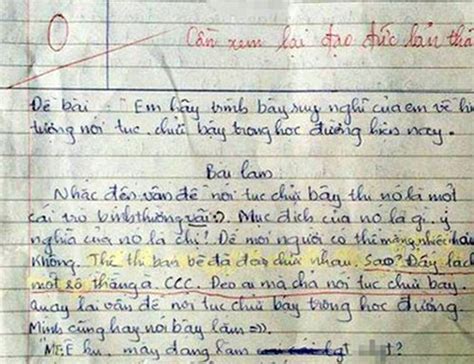 0
Cần xem lại đạo đức bản thâ
Đề bài: "Em hãy trình bày suy nghĩ của em về hi
tượng nói tục, chửi bậy trong học đường hiện nay.
Bài làm
Nhắc đến vấn đề nói tục chửi bậy thì nó là một
cái trò bình thường vãi :). Mục đích của nó là gì, ý
nghĩa của nó là chi! Để mọi người có thể mắng nhiếc
không. Thế thì bạn bè đã chửi nhau. Sao? Đấy là
một số thằng à. CCC. Đeo ai mà chả nói tục chửi bậy
quay lại vấn đề nói tục chửi bậy trong học đường
Mình cũng hay nói bậy lắm =)).
mày đang làm